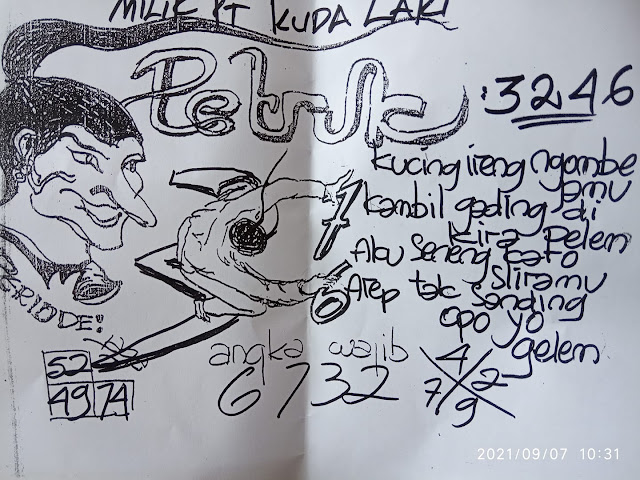 MILIK PT KUDA LAKI
Petruk : 3246
kucing ireng ngombe
jamu
kambil gading di
kira pelem
Aku seneng karo
sliramu
Arep tak sanding
opo yo
gelem
7
0
PERIODE!
52
49 74
angka wajib
6732
4
7 2
9
2021/09/07 10:31